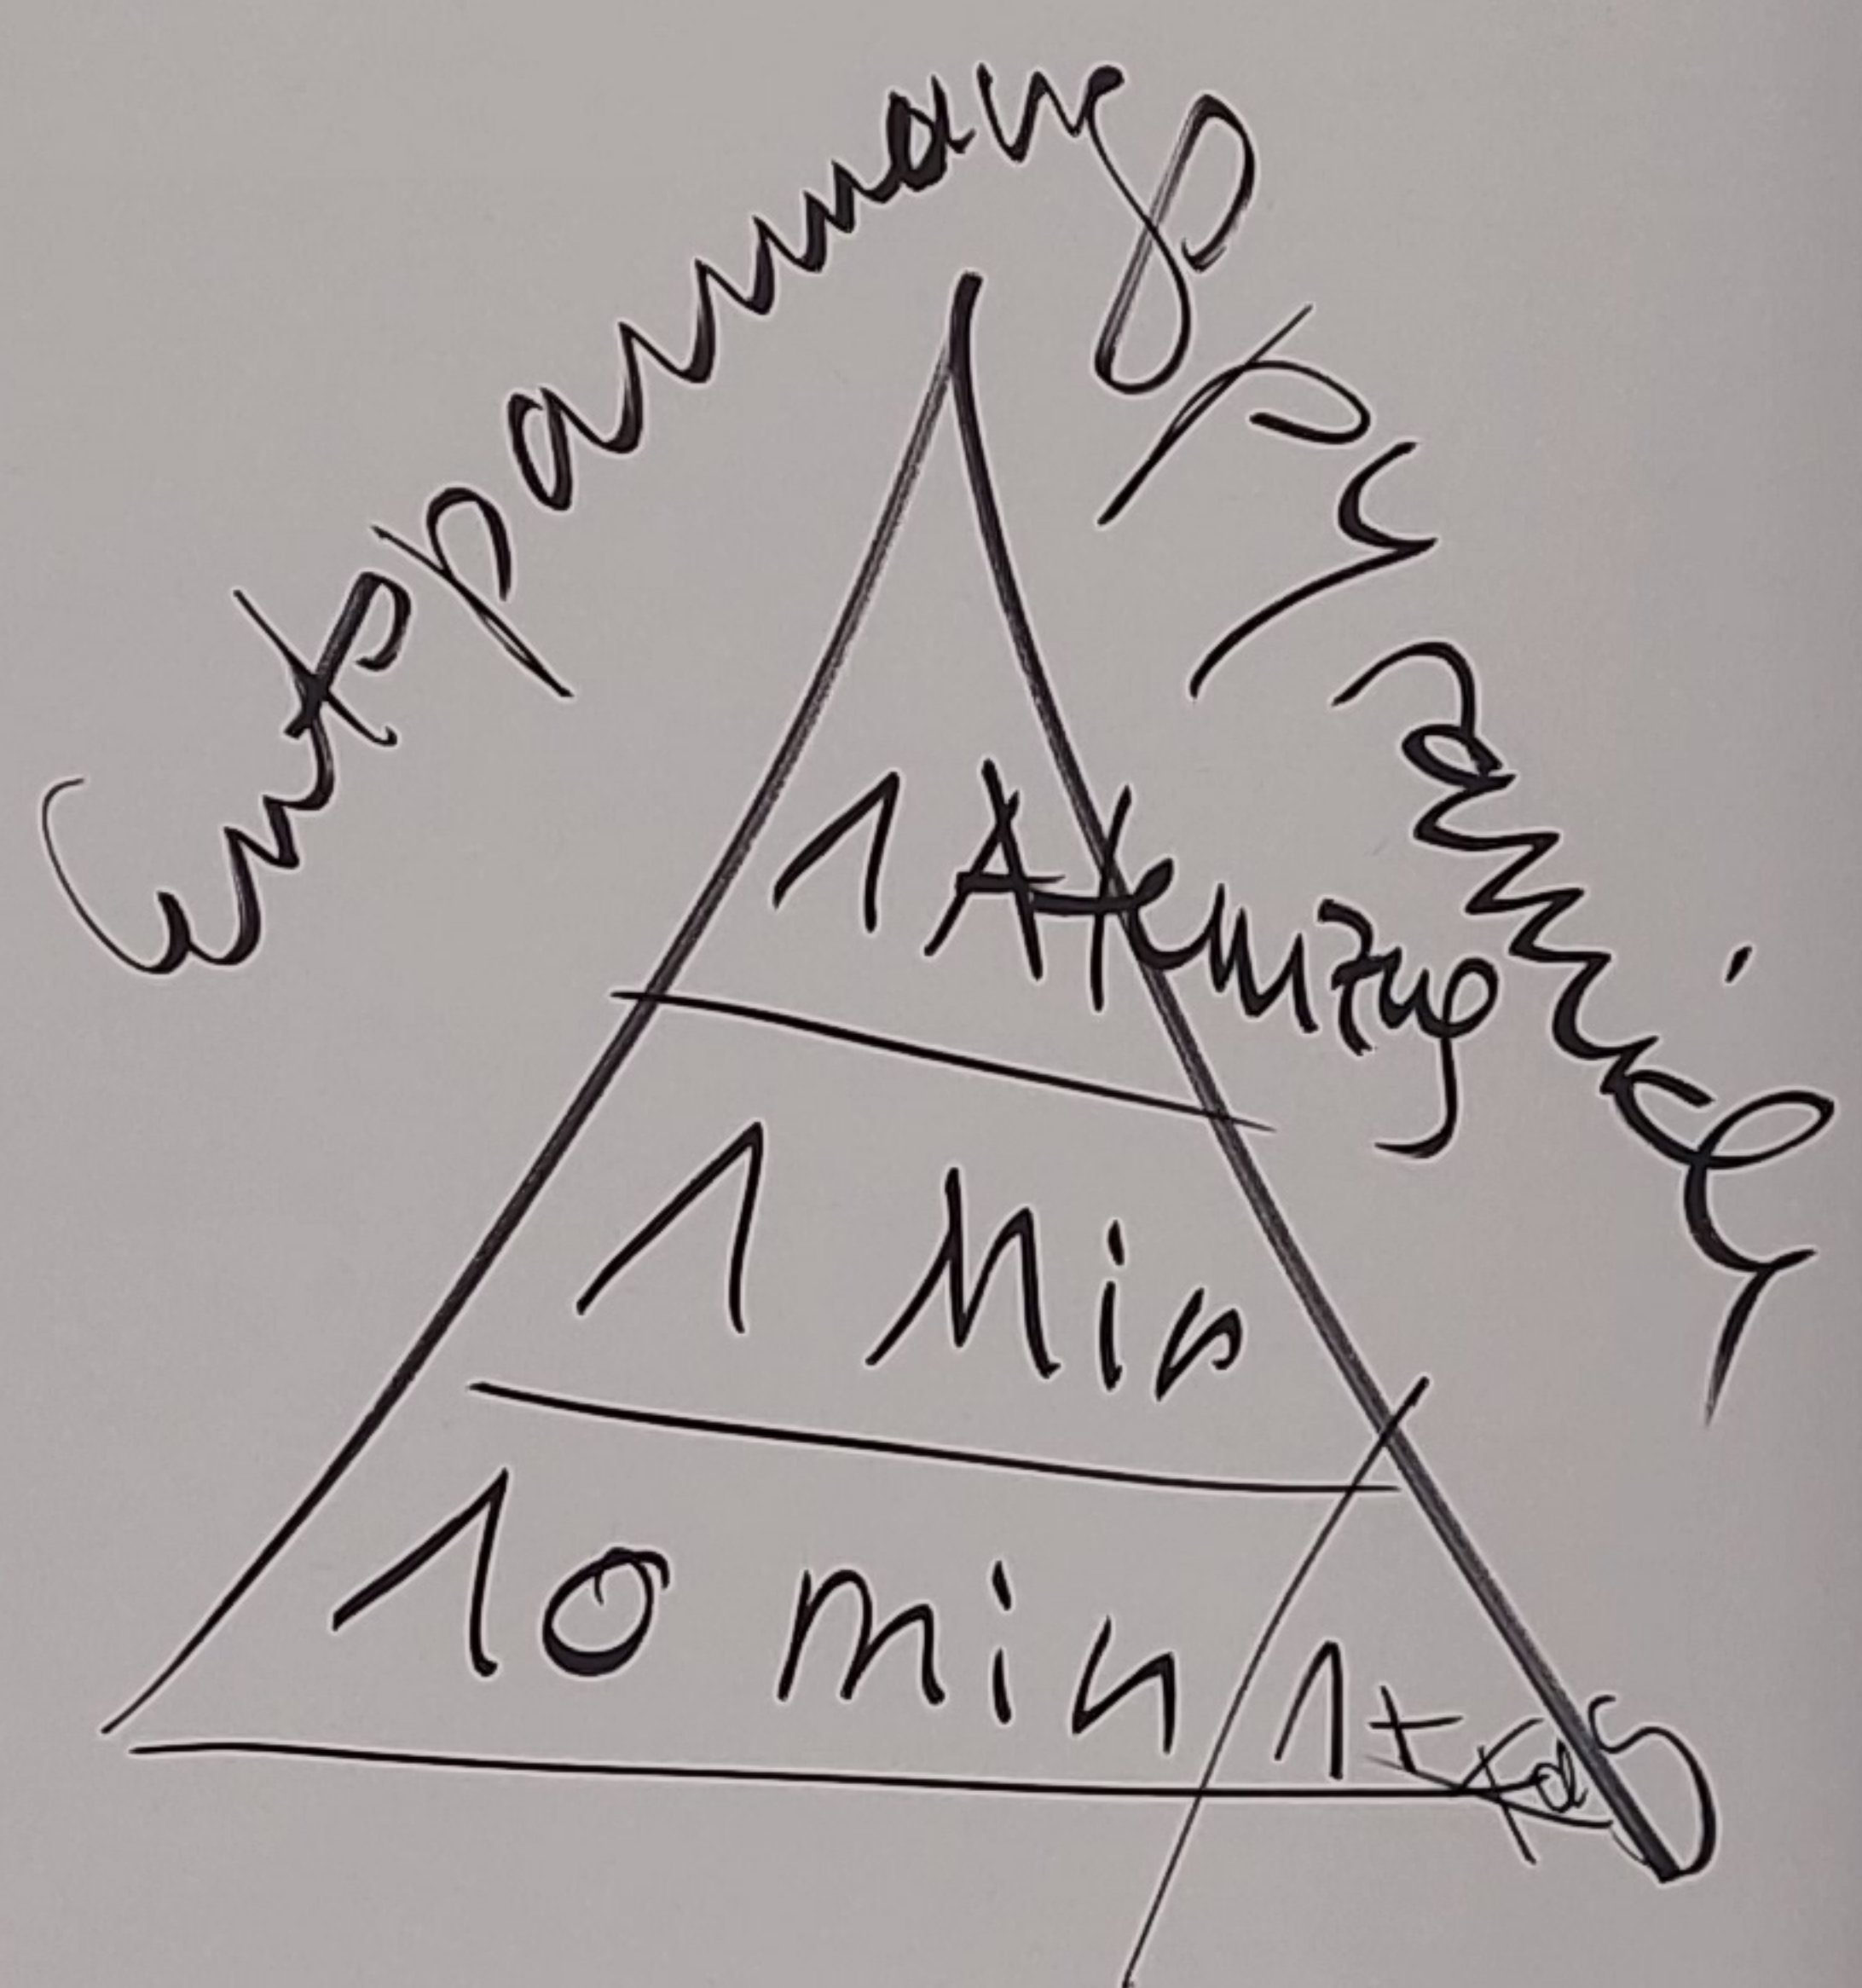 Entspannungspyramide
1 Atemzug
1 Min
10 min
1x